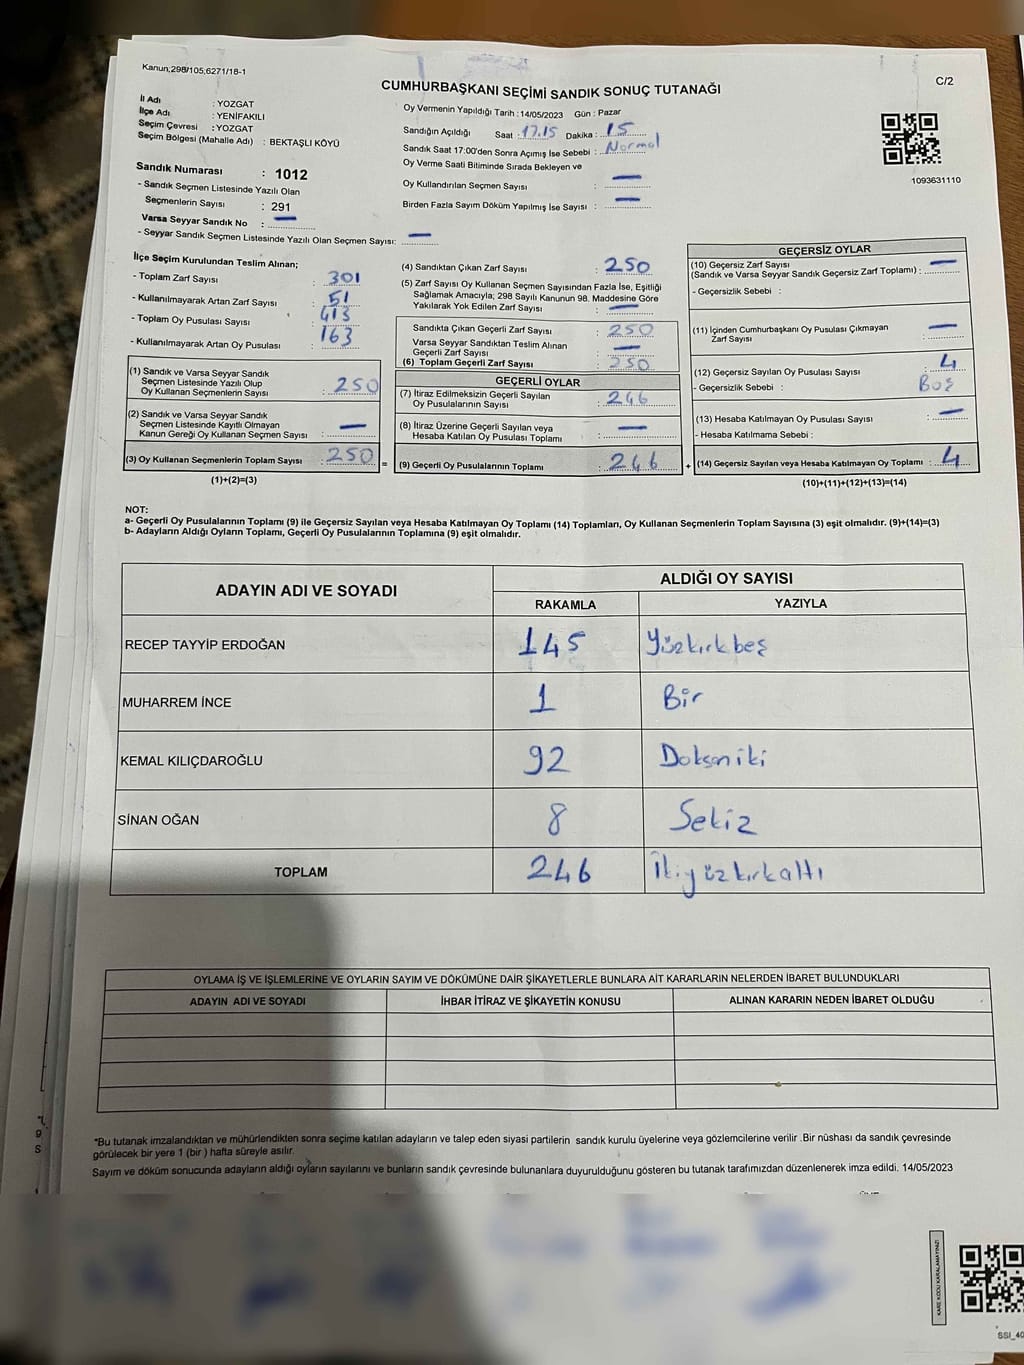 Kanun;298/105,6271/18-1
C/2
CUMHURBAŞKANI SEÇİMİ SANDIK SONUÇ TUTANAĞI
İl Adı : YOZGAT
İlçe Adı : YENİFAKILI
Seçim Çevresi : YOZGAT
Seçim Bölgesi (Mahalle Adı) : BEKTAŞLI KÖYÜ
Sandık Numarası : 1012
- Sandık Seçmen Listesinde Yazılı Olan
Seçmenlerin Sayısı : 291
Varsa Seyyar Sandık No : —
- Seyyar Sandık Seçmen Listesinde Yazılı Olan Seçmen Sayısı: —
Oy Vermenin Yapıldığı Tarih : 14/05/2023 Gün : Pazar
Sandığın Açıldığı Saat : 17.15 Dakika : 15
Sandık Saat 17:00'den Sonra Açımış İse Sebebi : Normal
Oy Verme Saati Bitiminde Sırada Bekleyen ve
Oy Kullandırılan Seçmen Sayısı : —
Birden Fazla Sayım Döküm Yapılmış İse Sayısı : —
1093631110
İlçe Seçim Kurulundan Teslim Alınan;
- Toplam Zarf Sayısı : 301
- Kullanılmayarak Artan Zarf Sayısı : 51
- Toplam Oy Pusulası Sayısı : 413
- Kullanılmayarak Artan Oy Pusulası : 163
(1) Sandık ve Varsa Seyyar Sandık
Seçmen Listesinde Yazılı Olup
Oy Kullanan Seçmenlerin Sayısı : 250
(2) Sandık ve Varsa Seyyar Sandık
Seçmen Listesinde Kayıtlı Olmayan
Kanun Gereği Oy Kullanan Seçmen Sayısı : —
(3) Oy Kullanan Seçmenlerin Toplam Sayısı : 250 =
(1)+(2)=(3)
(4) Sandıktan Çıkan Zarf Sayısı : 250
(5) Zarf Sayısı Oy Kullanan Seçmen Sayısından Fazla İse, Eşitliği
Sağlamak Amacıyla; 298 Sayılı Kanunun 98. Maddesine Göre
Yakılarak Yok Edilen Zarf Sayısı : —
Sandıkta Çıkan Geçerli Zarf Sayısı : 250
Varsa Seyyar Sandıktan Teslim Alınan
Geçerli Zarf Sayısı : —
(6) Toplam Geçerli Zarf Sayısı : 250
GEÇERLİ OYLAR
(7) İtiraz Edilmeksizin Geçerli Sayılan
Oy Pusulalarının Sayısı : 246
(8) İtiraz Üzerine Geçerli Sayılan veya
Hesaba Katılan Oy Pusulası Toplamı : —
(9) Geçerli Oy Pusulalarının Toplamı : 246 +
GEÇERSİZ OYLAR
(10) Geçersiz Zarf Sayısı
(Sandık ve Varsa Seyyar Sandık Geçersiz Zarf Toplamı) : —
- Geçersizlik Sebebi :
(11) İçinden Cumhurbaşkanı Oy Pusulası Çıkmayan
Zarf Sayısı : —
(12) Geçersiz Sayılan Oy Pusulası Sayısı : 4
- Geçersizlik Sebebi : Boş
(13) Hesaba Katılmayan Oy Pusulası Sayısı : —
- Hesaba Katılmama Sebebi :
(14) Geçersiz Sayılan veya Hesaba Katılmayan Oy Toplamı : 4
(10)+(11)+(12)+(13)=(14)
NOT:
a- Geçerli Oy Pusulalarının Toplamı (9) ile Geçersiz Sayılan veya Hesaba Katılmayan Oy Toplamı (14) Toplamları, Oy Kullanan Seçmenlerin Toplam Sayısına (3) eşit olmalıdır. (9)+(14)=(3)
b- Adayların Aldığı Oyların Toplamı, Geçerli Oy Pusulalarının Toplamına (9) eşit olmalıdır.
ADAYIN ADI VE SOYADI ALDIĞI OY SAYISI
RAKAMLA YAZIYLA
RECEP TAYYİP ERDOĞAN 145 Yüzkırkbeş
MUHARREM İNCE 1 Bir
KEMAL KILIÇDAROĞLU 92 Doksaniki
SİNAN OĞAN 8 Sekiz
TOPLAM 246 İkiyüzkırkaltı
OYLAMA İŞ VE İŞLEMLERİNE VE OYLARIN SAYIM VE DÖKÜMÜNE DAİR ŞİKAYETLERLE BUNLARA AİT KARARLARIN NELERDEN İBARET BULUNDUKLARI
ADAYIN ADI VE SOYADI İHBAR İTİRAZ VE ŞİKAYETİN KONUSU ALINAN KARARIN NEDEN İBARET OLDUĞU
*Bu tutanak imzalandıktan ve mühürlendikten sonra seçime katılan adayların ve talep eden siyasi partilerin sandık kurulu üyelerine veya gözlemcilerine verilir .Bir nüshası da sandık çevresinde
görülecek bir yere 1 (bir ) hafta süreyle asılır.
Sayım ve döküm sonucunda adayların aldığı oyların sayılarını ve bunların sandık çevresinde bulunanlara duyurulduğunu gösteren bu tutanak tarafımızdan düzenlenerek imza edildi. 14/05/2023
KARE KODU KARALAMAYINIZ!
SSI_40